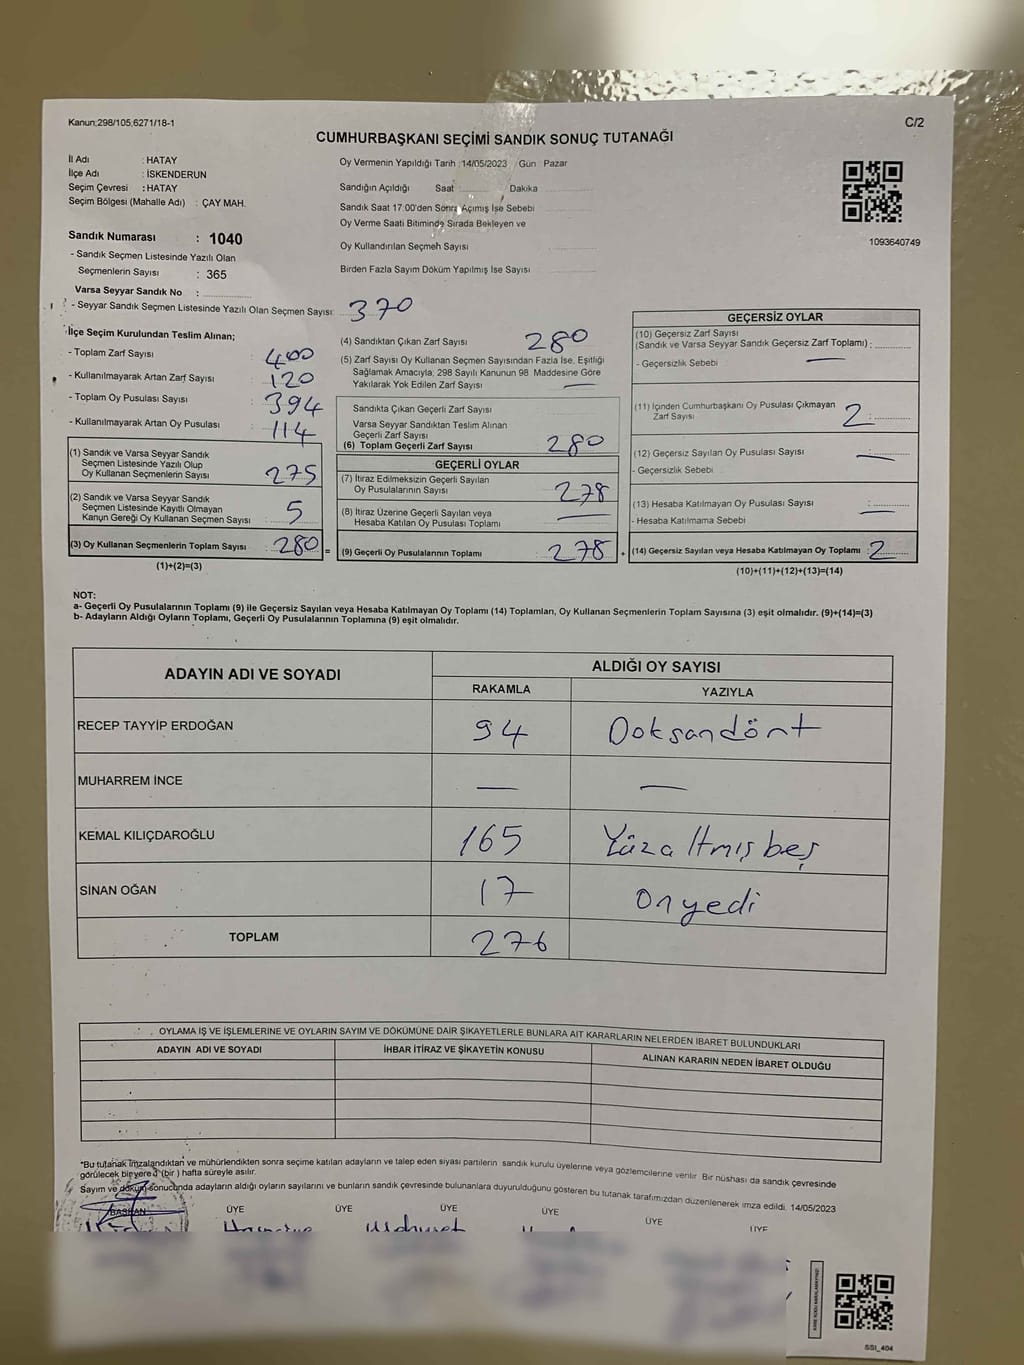 Kanun;298/105,6271/18-1
C/2
CUMHURBAŞKANI SEÇİMİ SANDIK SONUÇ TUTANAĞI
İl Adı : HATAY
İlçe Adı : İSKENDERUN
Seçim Çevresi : HATAY
Seçim Bölgesi (Mahalle Adı) : ÇAY MAH.
Sandık Numarası : 1040
- Sandık Seçmen Listesinde Yazılı Olan
Seçmenlerin Sayısı : 365
Varsa Seyyar Sandık No :
- Seyyar Sandık Seçmen Listesinde Yazılı Olan Seçmen Sayısı: 370
Oy Vermenin Yapıldığı Tarih :14/05/2023 Gün Pazar
Sandığın Açıldığı Saat Dakika
Sandık Saat 17:00'den Sonra Açımış İse Sebebi
Oy Verme Saati Bitiminde Sırada Bekleyen ve
Oy Kullandırılan Seçmen Sayısı
Birden Fazla Sayım Döküm Yapılmış İse Sayısı
1093640749
İlçe Seçim Kurulundan Teslim Alınan;
- Toplam Zarf Sayısı : 400
- Kullanılmayarak Artan Zarf Sayısı : 120
- Toplam Oy Pusulası Sayısı : 394
- Kullanılmayarak Artan Oy Pusulası : 114
(1) Sandık ve Varsa Seyyar Sandık
Seçmen Listesinde Yazılı Olup
Oy Kullanan Seçmenlerin Sayısı : 275
(2) Sandık ve Varsa Seyyar Sandık
Seçmen Listesinde Kayıtlı Olmayan
Kanun Gereği Oy Kullanan Seçmen Sayısı : 5
(3) Oy Kullanan Seçmenlerin Toplam Sayısı : 280 =
(1)+(2)=(3)
(4) Sandıktan Çıkan Zarf Sayısı 280
(5) Zarf Sayısı Oy Kullanan Seçmen Sayısından Fazla İse, Eşitliği
Sağlamak Amacıyla; 298 Sayılı Kanunun 98. Maddesine Göre
Yakılarak Yok Edilen Zarf Sayısı —
Sandıkta Çıkan Geçerli Zarf Sayısı
Varsa Seyyar Sandıktan Teslim Alınan
Geçerli Zarf Sayısı
(6) Toplam Geçerli Zarf Sayısı 280
GEÇERLİ OYLAR
(7) İtiraz Edilmeksizin Geçerli Sayılan
Oy Pusulalarının Sayısı 278
(8) İtiraz Üzerine Geçerli Sayılan veya
Hesaba Katılan Oy Pusulası Toplamı —
(9) Geçerli Oy Pusulalarının Toplamı 278 +
GEÇERSİZ OYLAR
(10) Geçersiz Zarf Sayısı
(Sandık ve Varsa Seyyar Sandık Geçersiz Zarf Toplamı) :
- Geçersizlik Sebebi —
(11) İçinden Cumhurbaşkanı Oy Pusulası Çıkmayan
Zarf Sayısı : 2
(12) Geçersiz Sayılan Oy Pusulası Sayısı : —
- Geçersizlik Sebebi
(13) Hesaba Katılmayan Oy Pusulası Sayısı : —
- Hesaba Katılmama Sebebi
(14) Geçersiz Sayılan veya Hesaba Katılmayan Oy Toplamı : 2
(10)+(11)+(12)+(13)=(14)
NOT:
a- Geçerli Oy Pusulalarının Toplamı (9) ile Geçersiz Sayılan veya Hesaba Katılmayan Oy Toplamı (14) Toplamları, Oy Kullanan Seçmenlerin Toplam Sayısına (3) eşit olmalıdır. (9)+(14)=(3)
b- Adayların Aldığı Oyların Toplamı, Geçerli Oy Pusulalarının Toplamına (9) eşit olmalıdır.
ADAYIN ADI VE SOYADI
ALDIĞI OY SAYISI
RAKAMLA YAZIYLA
RECEP TAYYİP ERDOĞAN 94 Doksandört
MUHARREM İNCE — —
KEMAL KILIÇDAROĞLU 165 Yüzaltmışbeş
SİNAN OĞAN 17 Onyedi
TOPLAM 276
OYLAMA İŞ VE İŞLEMLERİNE VE OYLARIN SAYIM VE DÖKÜMÜNE DAİR ŞİKAYETLERLE BUNLARA AİT KARARLARIN NELERDEN İBARET BULUNDUKLARI
ADAYIN ADI VE SOYADI
İHBAR İTİRAZ VE ŞİKAYETİN KONUSU
ALINAN KARARIN NEDEN İBARET OLDUĞU
*Bu tutanak imzalandıktan ve mühürlendikten sonra seçime katılan adayların ve talep eden siyasi partilerin sandık kurulu üyelerine veya gözlemcilerine verilir. Bir nüshası da sandık çevresinde
görülecek bir yere 3 (bir ) hafta süreyle asılır.
Sayım ve döküm sonucunda adayların aldığı oyların sayılarını ve bunların sandık çevresinde bulunanlara duyurulduğunu gösteren bu tutanak tarafımızdan düzenlenerek imza edildi. 14/05/2023
BAŞKAN ÜYE ÜYE ÜYE ÜYE ÜYE
SSI_404